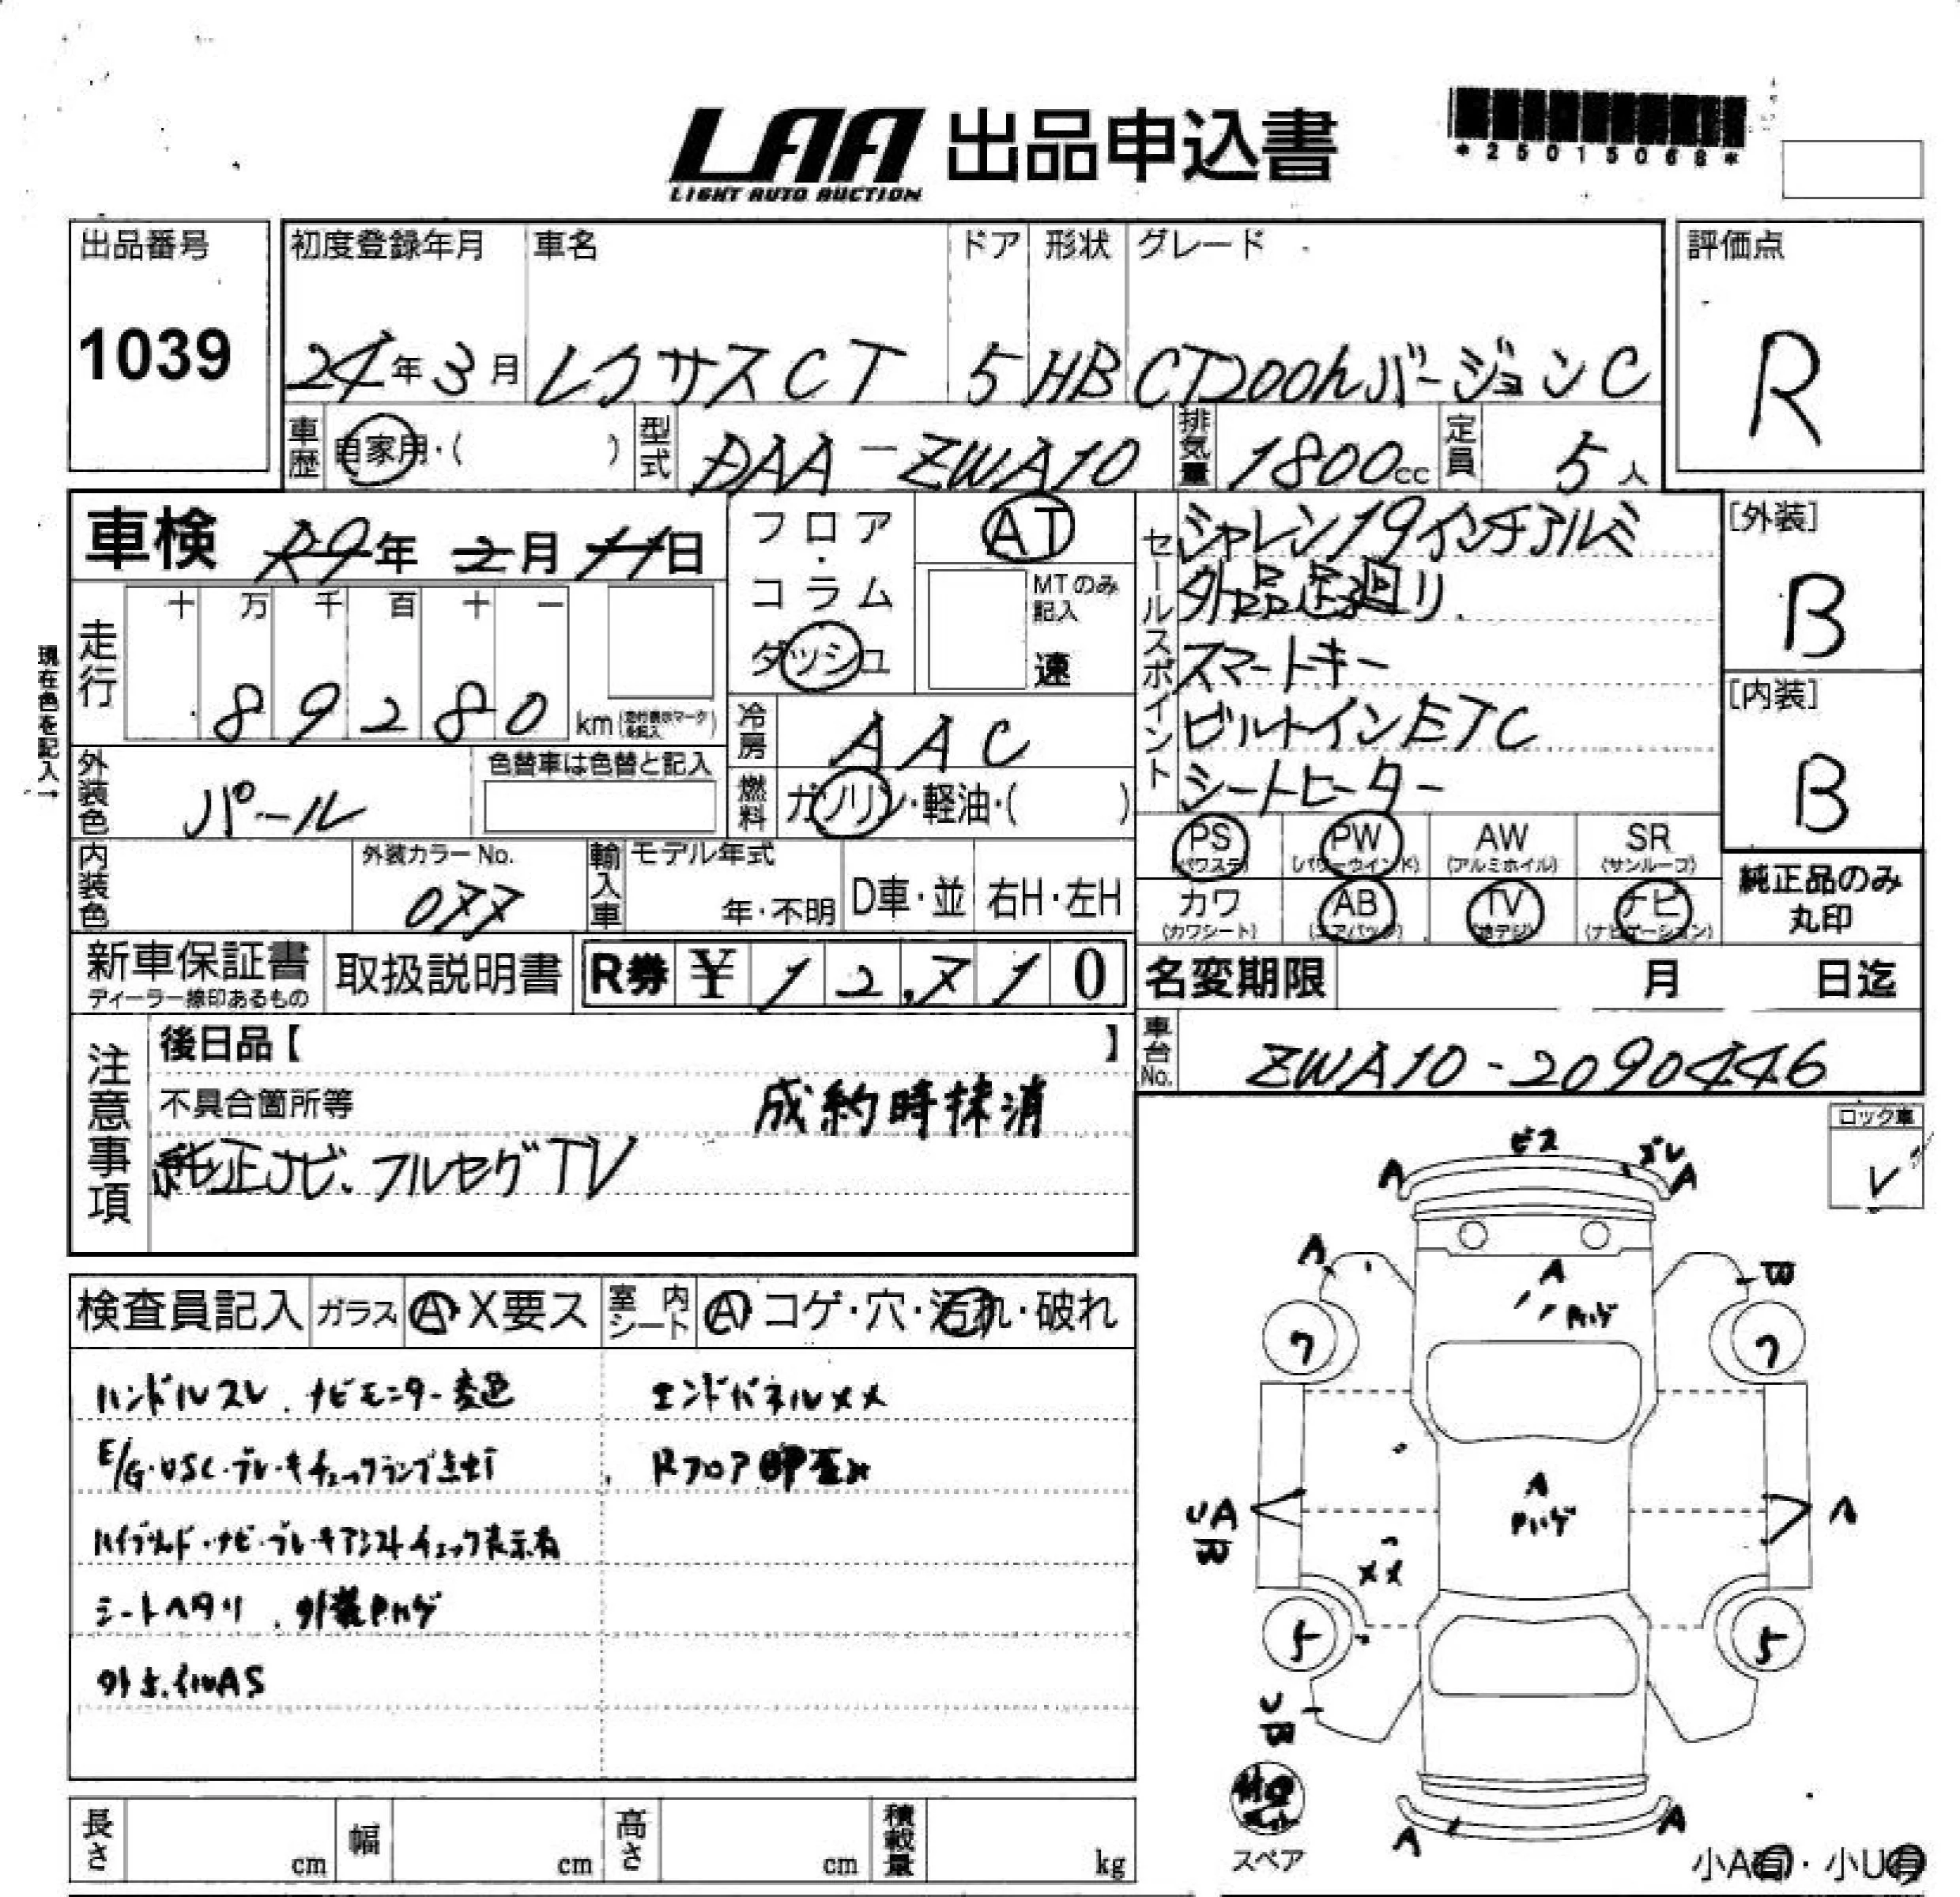 LAA 出品申込書
LIGHT AUTO AUCTION
*25015068*
出品番号
1039
初度登録年月 車名 ドア 形状 グレード
24年3月 レクサスCT 5 HB CT200hバージョンC
評価点
R
車歴 自家用・( ) 型式 DAA-ZWA10 排気量 1800cc 定員 5人
車検 R9年 2月 11日
フロア・コラム
ダッシュ
AT
MTのみ記入
速
セールスポイント
シャレン19インチアルミ
外品足廻り
スマートキー
ビルトインETC
シートヒーター
[外装]
B
[内装]
B
現在色を記入→
走行 十 万 千 百 十 一
89280 km
冷房 AAC
外装色 パール
色替車は色替と記入
燃料 ガソリン・軽油・( )
PS PW AW SR
(パワステ) (パワーウインド) (アルミホイル) (サンルーフ)
カワ AB TV ナビ
(カワシート) (エアバッグ) (地デジ) (ナビゲーション)
純正品のみ
丸印
内装色 外装カラーNo. 077
輸入車 モデル年式 年・不明 D車・並 右H・左H
新車保証書
ディーラー線印あるもの
取扱説明書
R券 ¥12,710
名変期限 月 日迄
車台No. ZWA10-2090446
注意事項
後日品【 】
不具合箇所等
成約時抹消
純正ナビ、フルセグTV
ロック車
レ
検査員記入 ガラス A・X要ス 室内シート A コゲ・穴・汚れ・破れ
ハンドルスレ、ナビモニター変色
エンドパネルXX
E/G・VSC・ブレーキチェックランプ点灯
Rフロア
ハイブリッド・ナビ・ブレーキアシストチェック表示有
シートヘタリ、外装Pハゲ
ビス ズレ
A A
A B
A
Pハゲ
7 7
A
Pハゲ
UA
B
A
XX
5 5
U
B
A A
スペア
長さ cm 幅 cm 高さ cm 積載量 kg
小A有・小U有